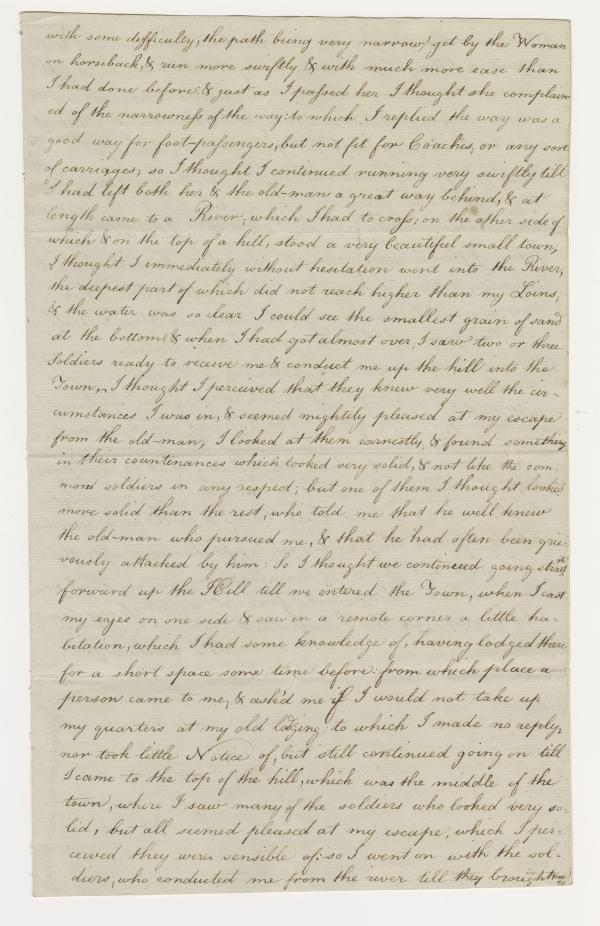 with some difficulty, the path being very narrow, get by the Woman
on horseback, & run more swiftly & with much more ease than
I had done before: & just as I passed her I thought she complain
ed of the narrowness of the way: to which I replied the way was a
good way for foot-passengers, but not fit for Coaches, or any sort
of carriages; so I thought I continued running very swiftly till
I had left both her & the old-man a great way behind, & at
length came to a River, which I had to cross; on the other side of
which & on the top of a hill, stood a very beautiful small town,
I thought I immediately without hesitation went into the River,
the deepest part of which did not reach higher than my Loins,
& the water was so clear I could see the smallest grain of sand
at the bottom: & when I had got almost over, I saw two or three
Soldiers ready to receive me & conduct me up the hill into the
Town, I thought I perceived that they knew very well the cir-
cumstances I was in, & seemed mightily pleased at my escape
from the old-man, I looked at them earnestly, & found something
in their countenances which looked very solid, & not like the com-
mon soldiers in any respect; but one of them I thought looked
more solid than the rest, who told me that he well knew
the old-man who pursued me, & that he had often been grie-
vously attacked by him: So I thought we continued going strait
forward up the Hill till we entered the Town, when I cast
my eyes on one side & saw in a remote corner a little ha-
bitation, which I had some knowledge of, having lodged there
for a short space some time before: from which place a
person came to me, & ask'd me if I would not take up
my quarters at my old lodging: to which I made no reply,
nor took little Notice of, but still continued going on till
I came to the top of the hill, which was the middle of the
town, where I saw many of the soldiers who looked very so-
lid, but all seemed pleased at my escape, which I per-
ceived they were sensible of: so I went on with the sol-
diers, who conducted me from the river till they brought me
to